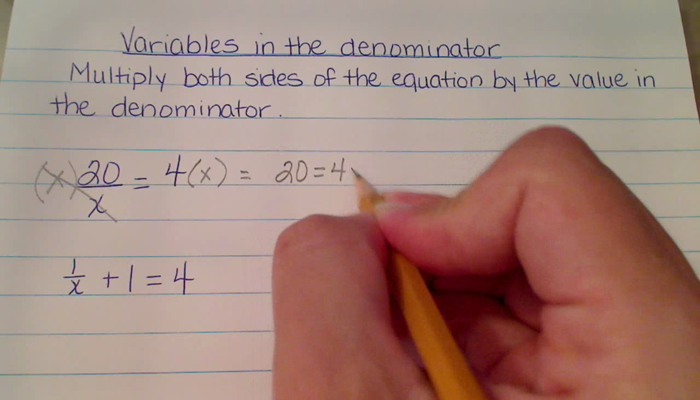 Variables in the denominator
Multiply both sides of the equation by the value in
the denominator.
(x) 20/x = 4(x) = 20 = 4
1/x + 1 = 4